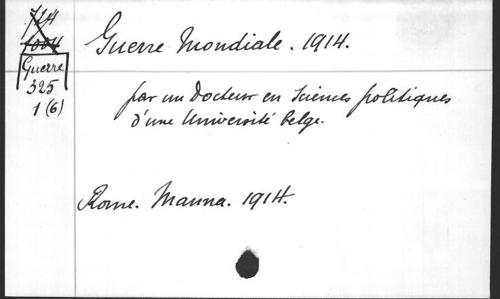 Guerre
325
1 (6)
Guerre Mondiale. 1914.
par un Docteur en Sciences politiques
d'une Université belge.
Rome. Manna. 1914.